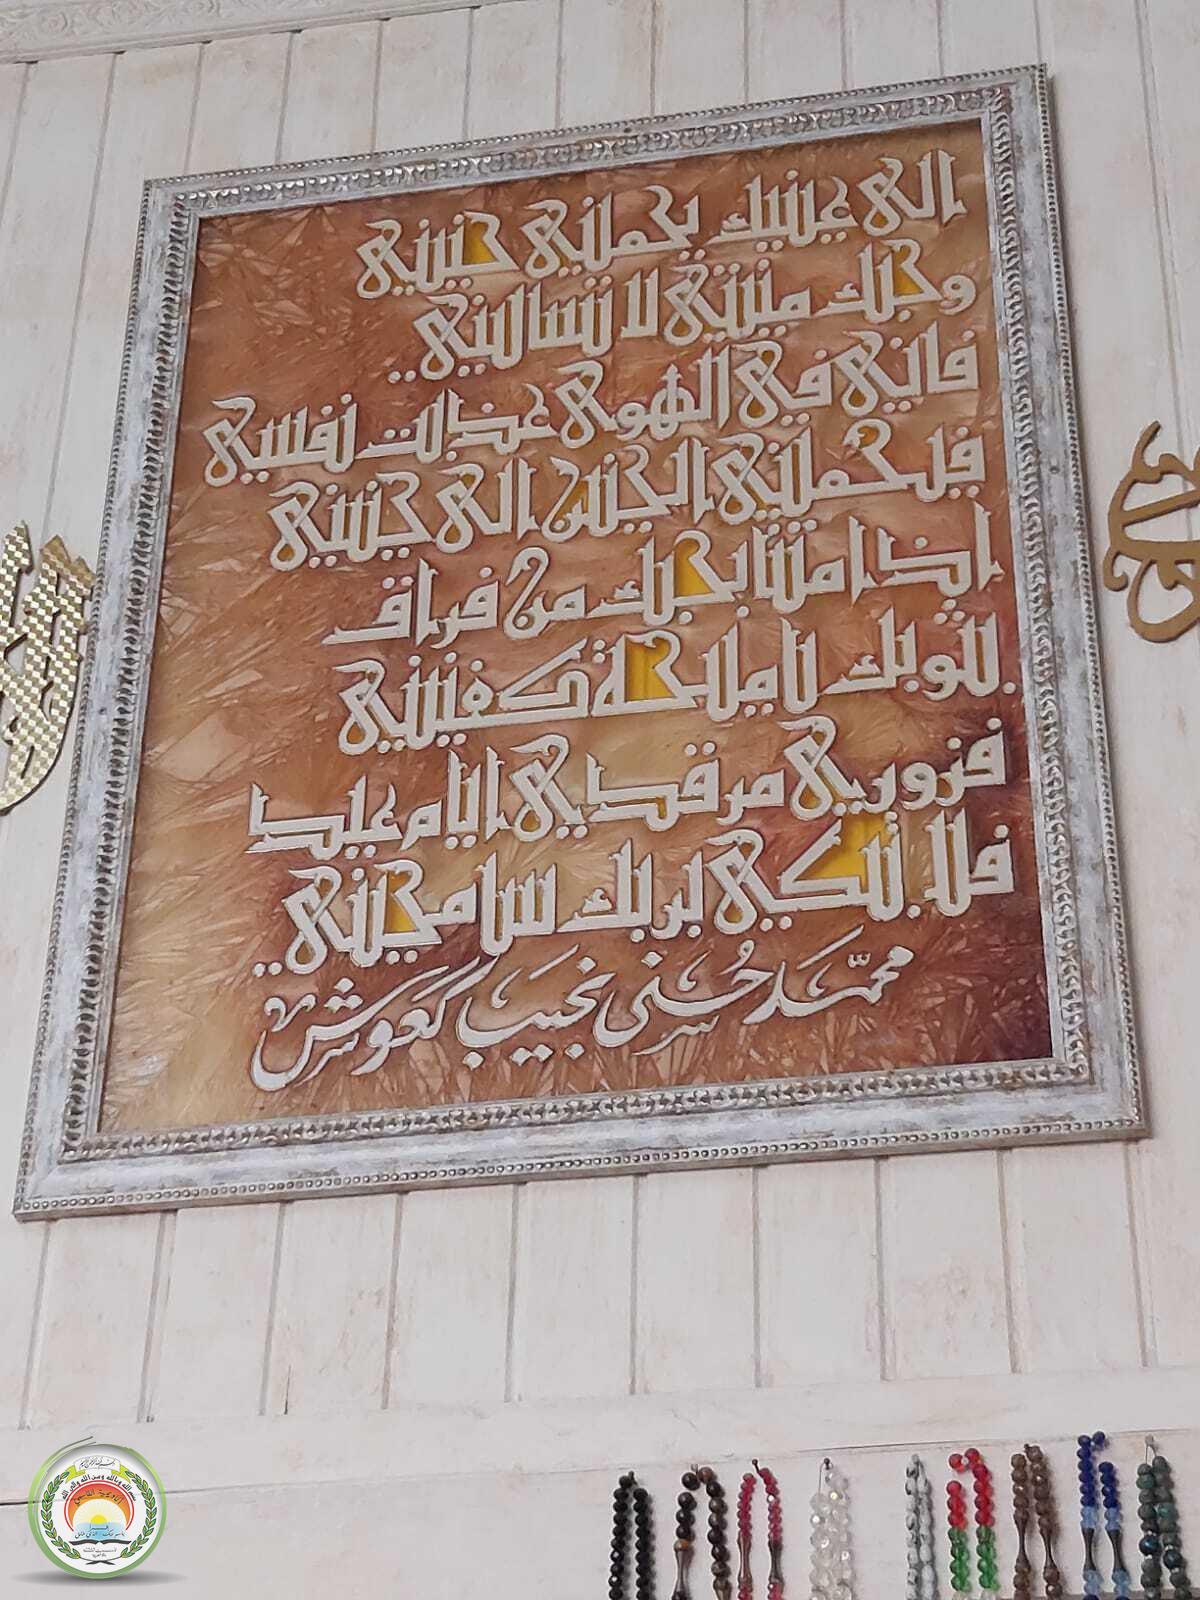 الى عينيك يحملني حنيني
وحبك ميتتي لا تسأليني..
فاني في الهوى عذلت نفسي
فيحملني الحنين الى حنيني
إذا متنا بحبك من فراق
بثوبك يا مليحة كفنيني
فزوري مرقدي ايام عيد
فلا تبكي لربك سامحيني..
محمد حسني نجيب كعوش